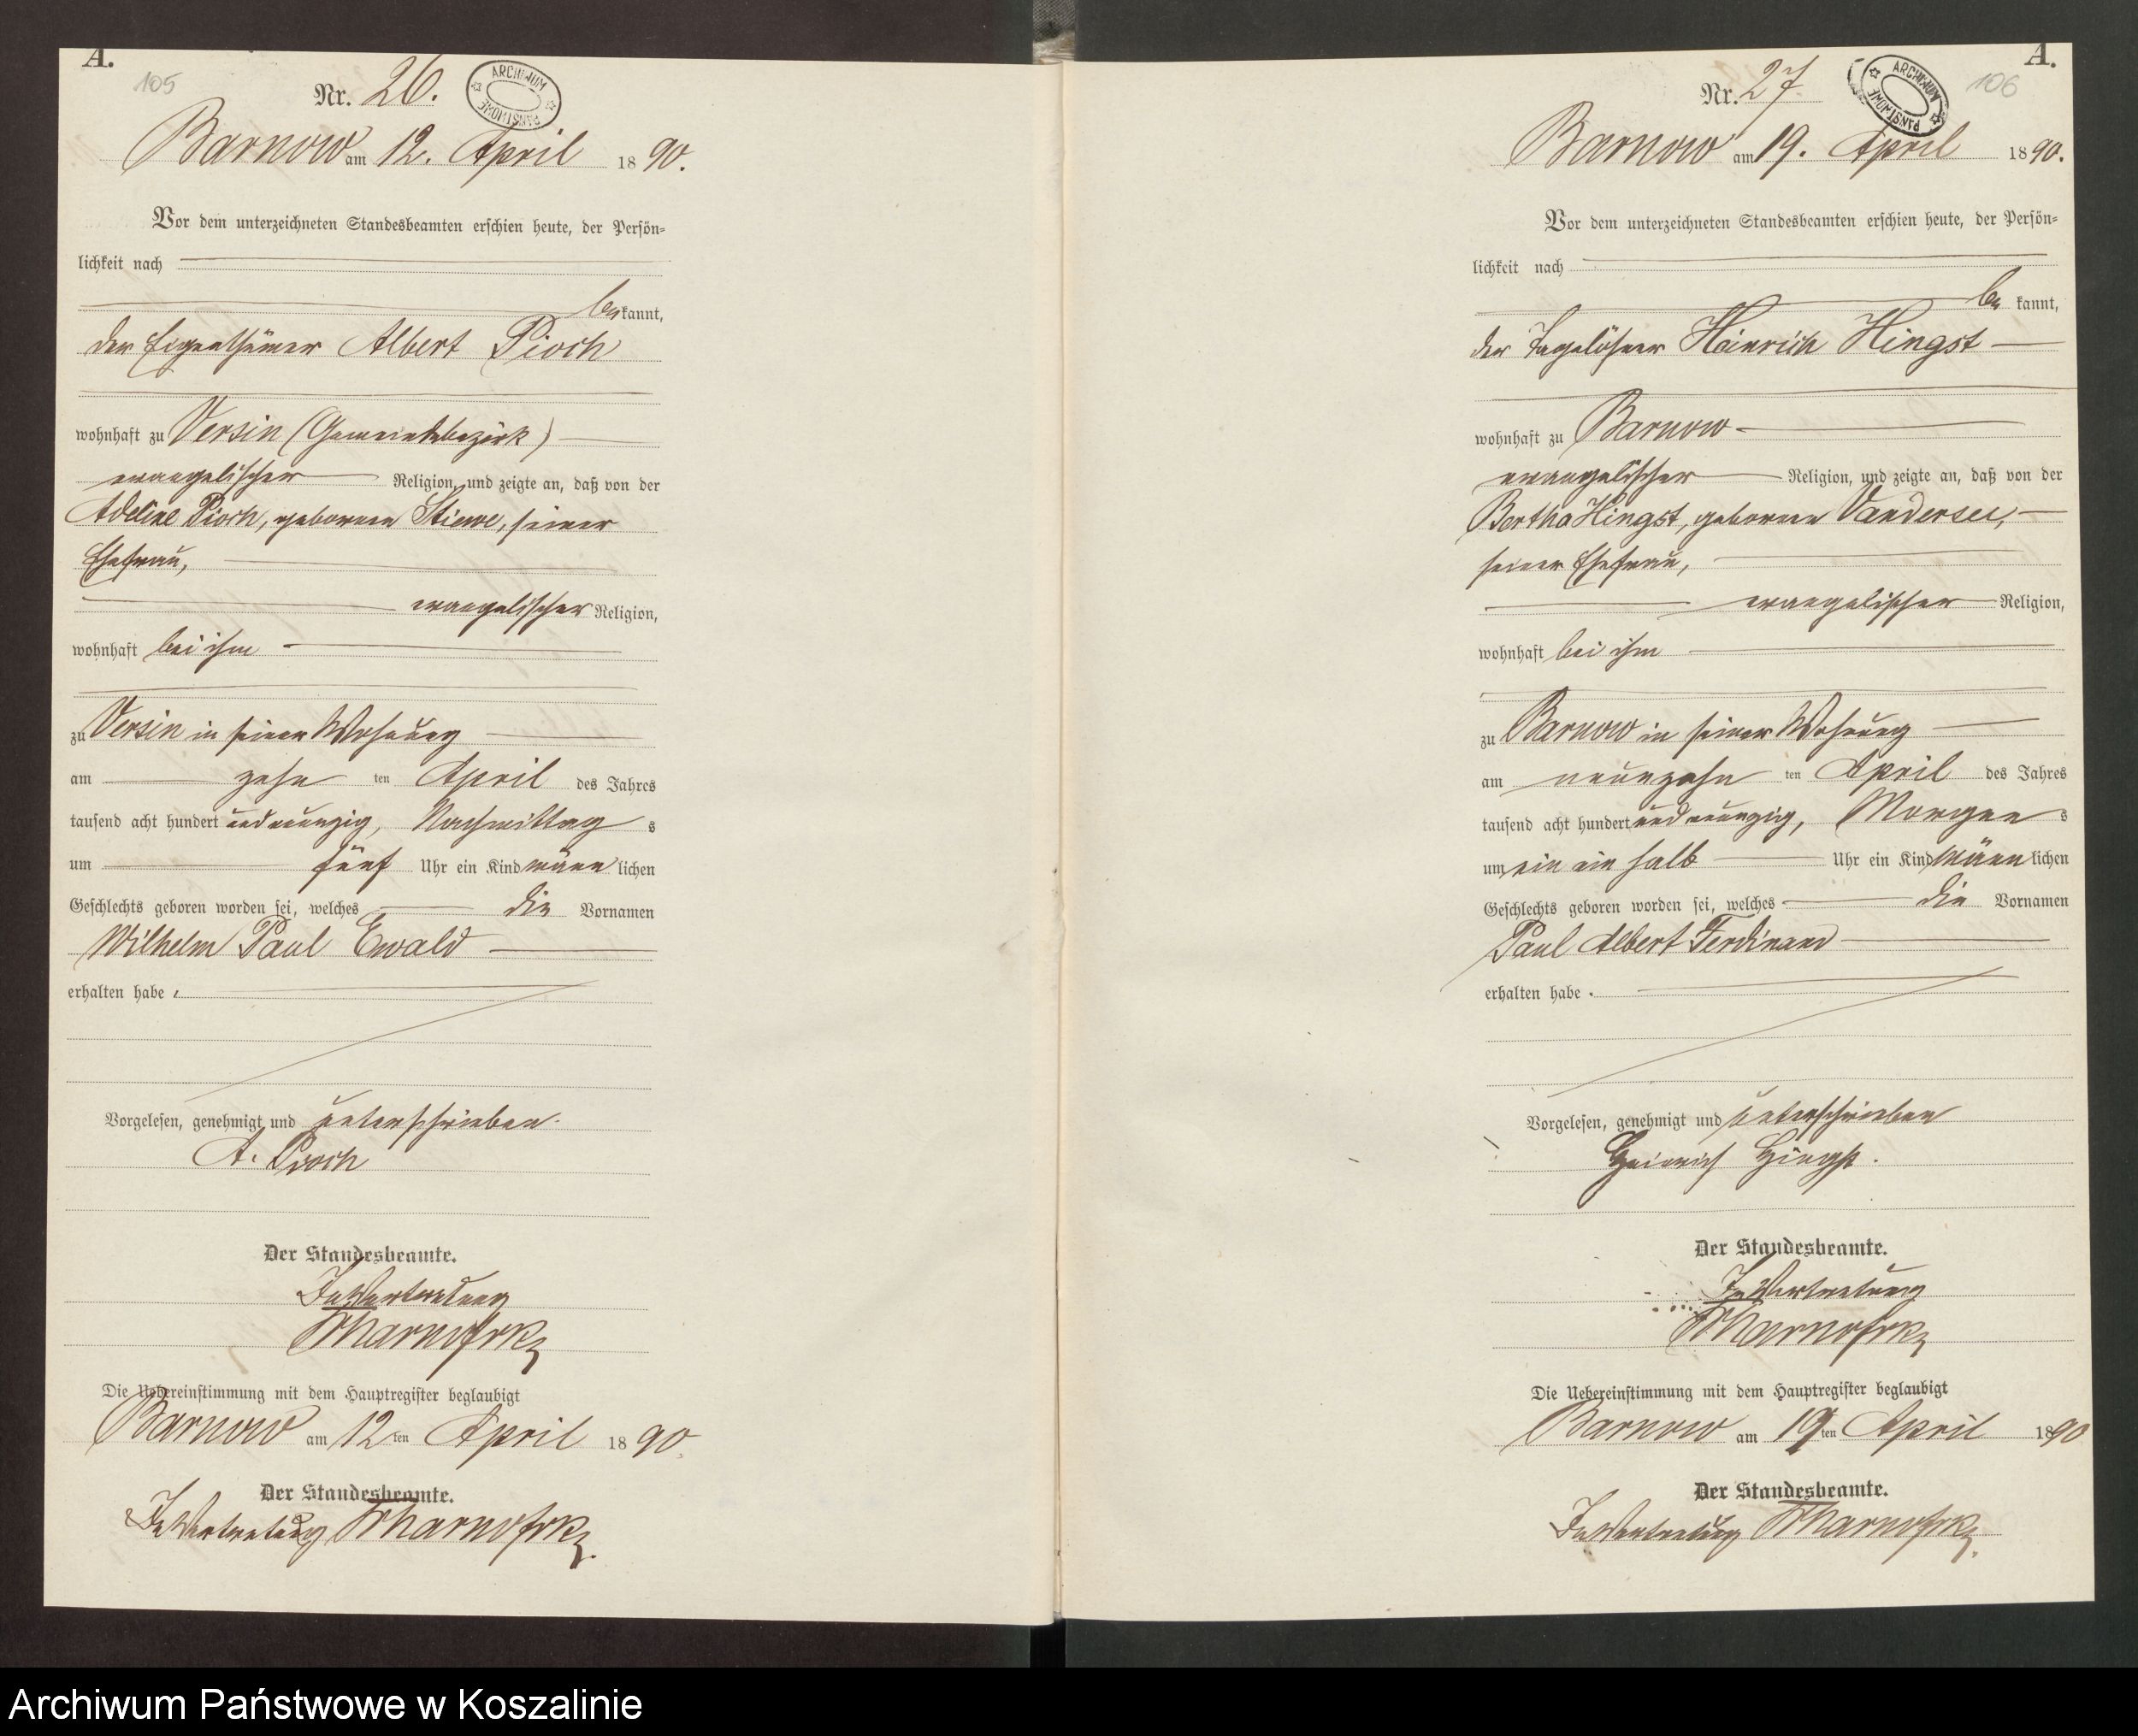 A.
105
Nr. 26.
ARCHIWUM PAŃSTWOWE
Barnow am 12. April 1890.
Vor dem unterzeichneten Standesbeamten erschien heute, der Persön-
lichkeit nach
be kannt,
der Eigenthümer Albert Pioch
wohnhaft zu Versin (Gemeindebezirk)
evangelischer Religion, und zeigte an, daß von der
Adeline Pioch, geborenen Stiewe, seiner
Ehefrau,
evangelischer Religion,
wohnhaft bei ihm
zu Versin in seiner Wohnung
am zehn ten April des Jahres
tausend acht hundert und neunzig, Nachmittag s
um fünf Uhr ein Kind männ lichen
Geschlechts geboren worden sei, welches die Vornamen
Wilhelm Paul Ewald
erhalten habe.
Vorgelesen, genehmigt und unterschrieben.
A. Pioch
Der Standesbeamte.
In Vertretung
Die Uebereinstimmung mit dem Hauptregister beglaubigt
Barnow am 12 ten April 1890.
Der Standesbeamte.
In Vertretung
A.
106
Nr. 27
ARCHIWUM PAŃSTWOWE
Barnow am 19. April 1890.
Vor dem unterzeichneten Standesbeamten erschien heute, der Persön-
lichkeit nach
be kannt,
der Tagelöhner Heinrich Hingst
wohnhaft zu Barnow
evangelischer Religion, und zeigte an, daß von der
Bertha Hingst, geborenen Vandersee,
seiner Ehefrau,
evangelischer Religion,
wohnhaft bei ihm
zu Barnow in seiner Wohnung
am neunzehn ten April des Jahres
tausend acht hundert und neunzig, Morgen s
um ein ein halb Uhr ein Kind männ lichen
Geschlechts geboren worden sei, welches die Vornamen
Paul Albert Ferdinand
erhalten habe.
Vorgelesen, genehmigt und unterschrieben
Heinrich Hingst.
Der Standesbeamte.
In Vertretung
Die Uebereinstimmung mit dem Hauptregister beglaubigt
Barnow am 19 ten April 1890
Der Standesbeamte.
In Vertretung
Archiwum Państwowe w Koszalinie